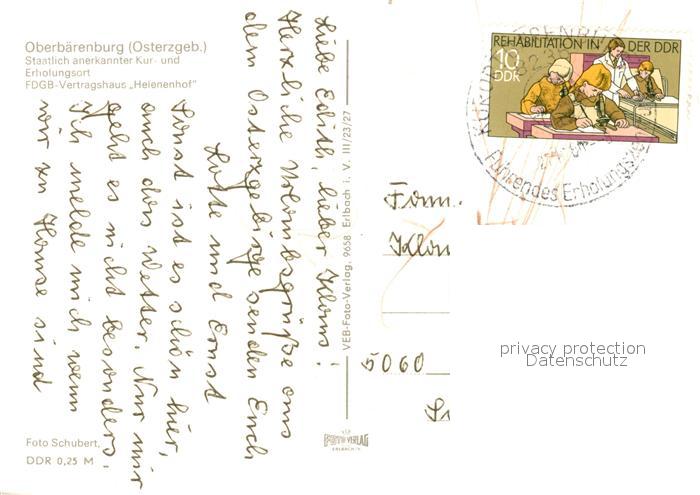 Oberbärenburg (Osterzgeb.)
Staatlich anerkannter Kur- und
Erholungsort
FDGB-Vertragshaus „Helenenhof"
Liebe Edith, lieber Klaus!
Herzliche Urlaubsgrüße aus
dem Osterzgebirge senden Euch
Lotte und Ernst
Sonst ist es schön hier,
auch das Wetter. Nur mir
geht es nicht besonders.
Ich melde mich wenn
wir zu Hause sind
Foto Schubert,
DDR 0,25 M
VEB-Foto-Verlag, 9658 Erlbach i. V. III/23/27
VEB
FOTO-VERLAG
ERLBACH
REHABILITATION IN DER DDR
10
DDR
Führendes Erholungs
Fam.
Klau
5060
privacy protection
Datenschutz